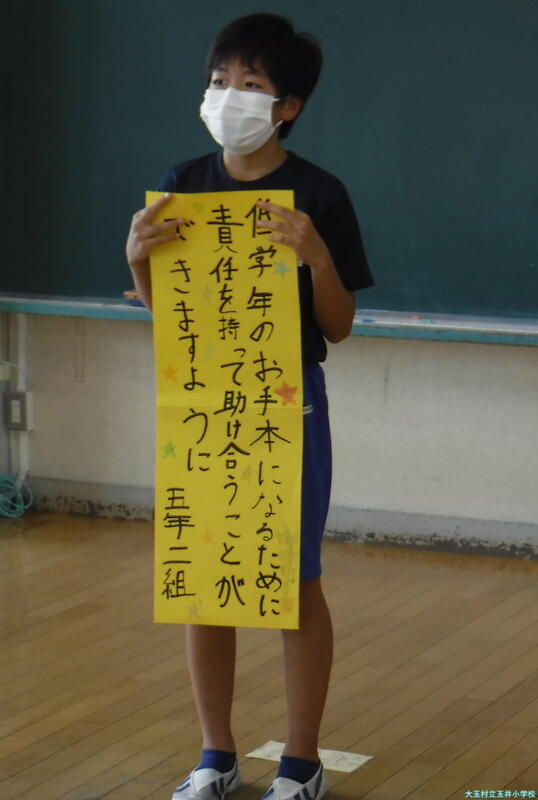 低学年のお手本になるために
責任を持って助け合うことが
できますように
五年二組
大玉村立玉井小学校